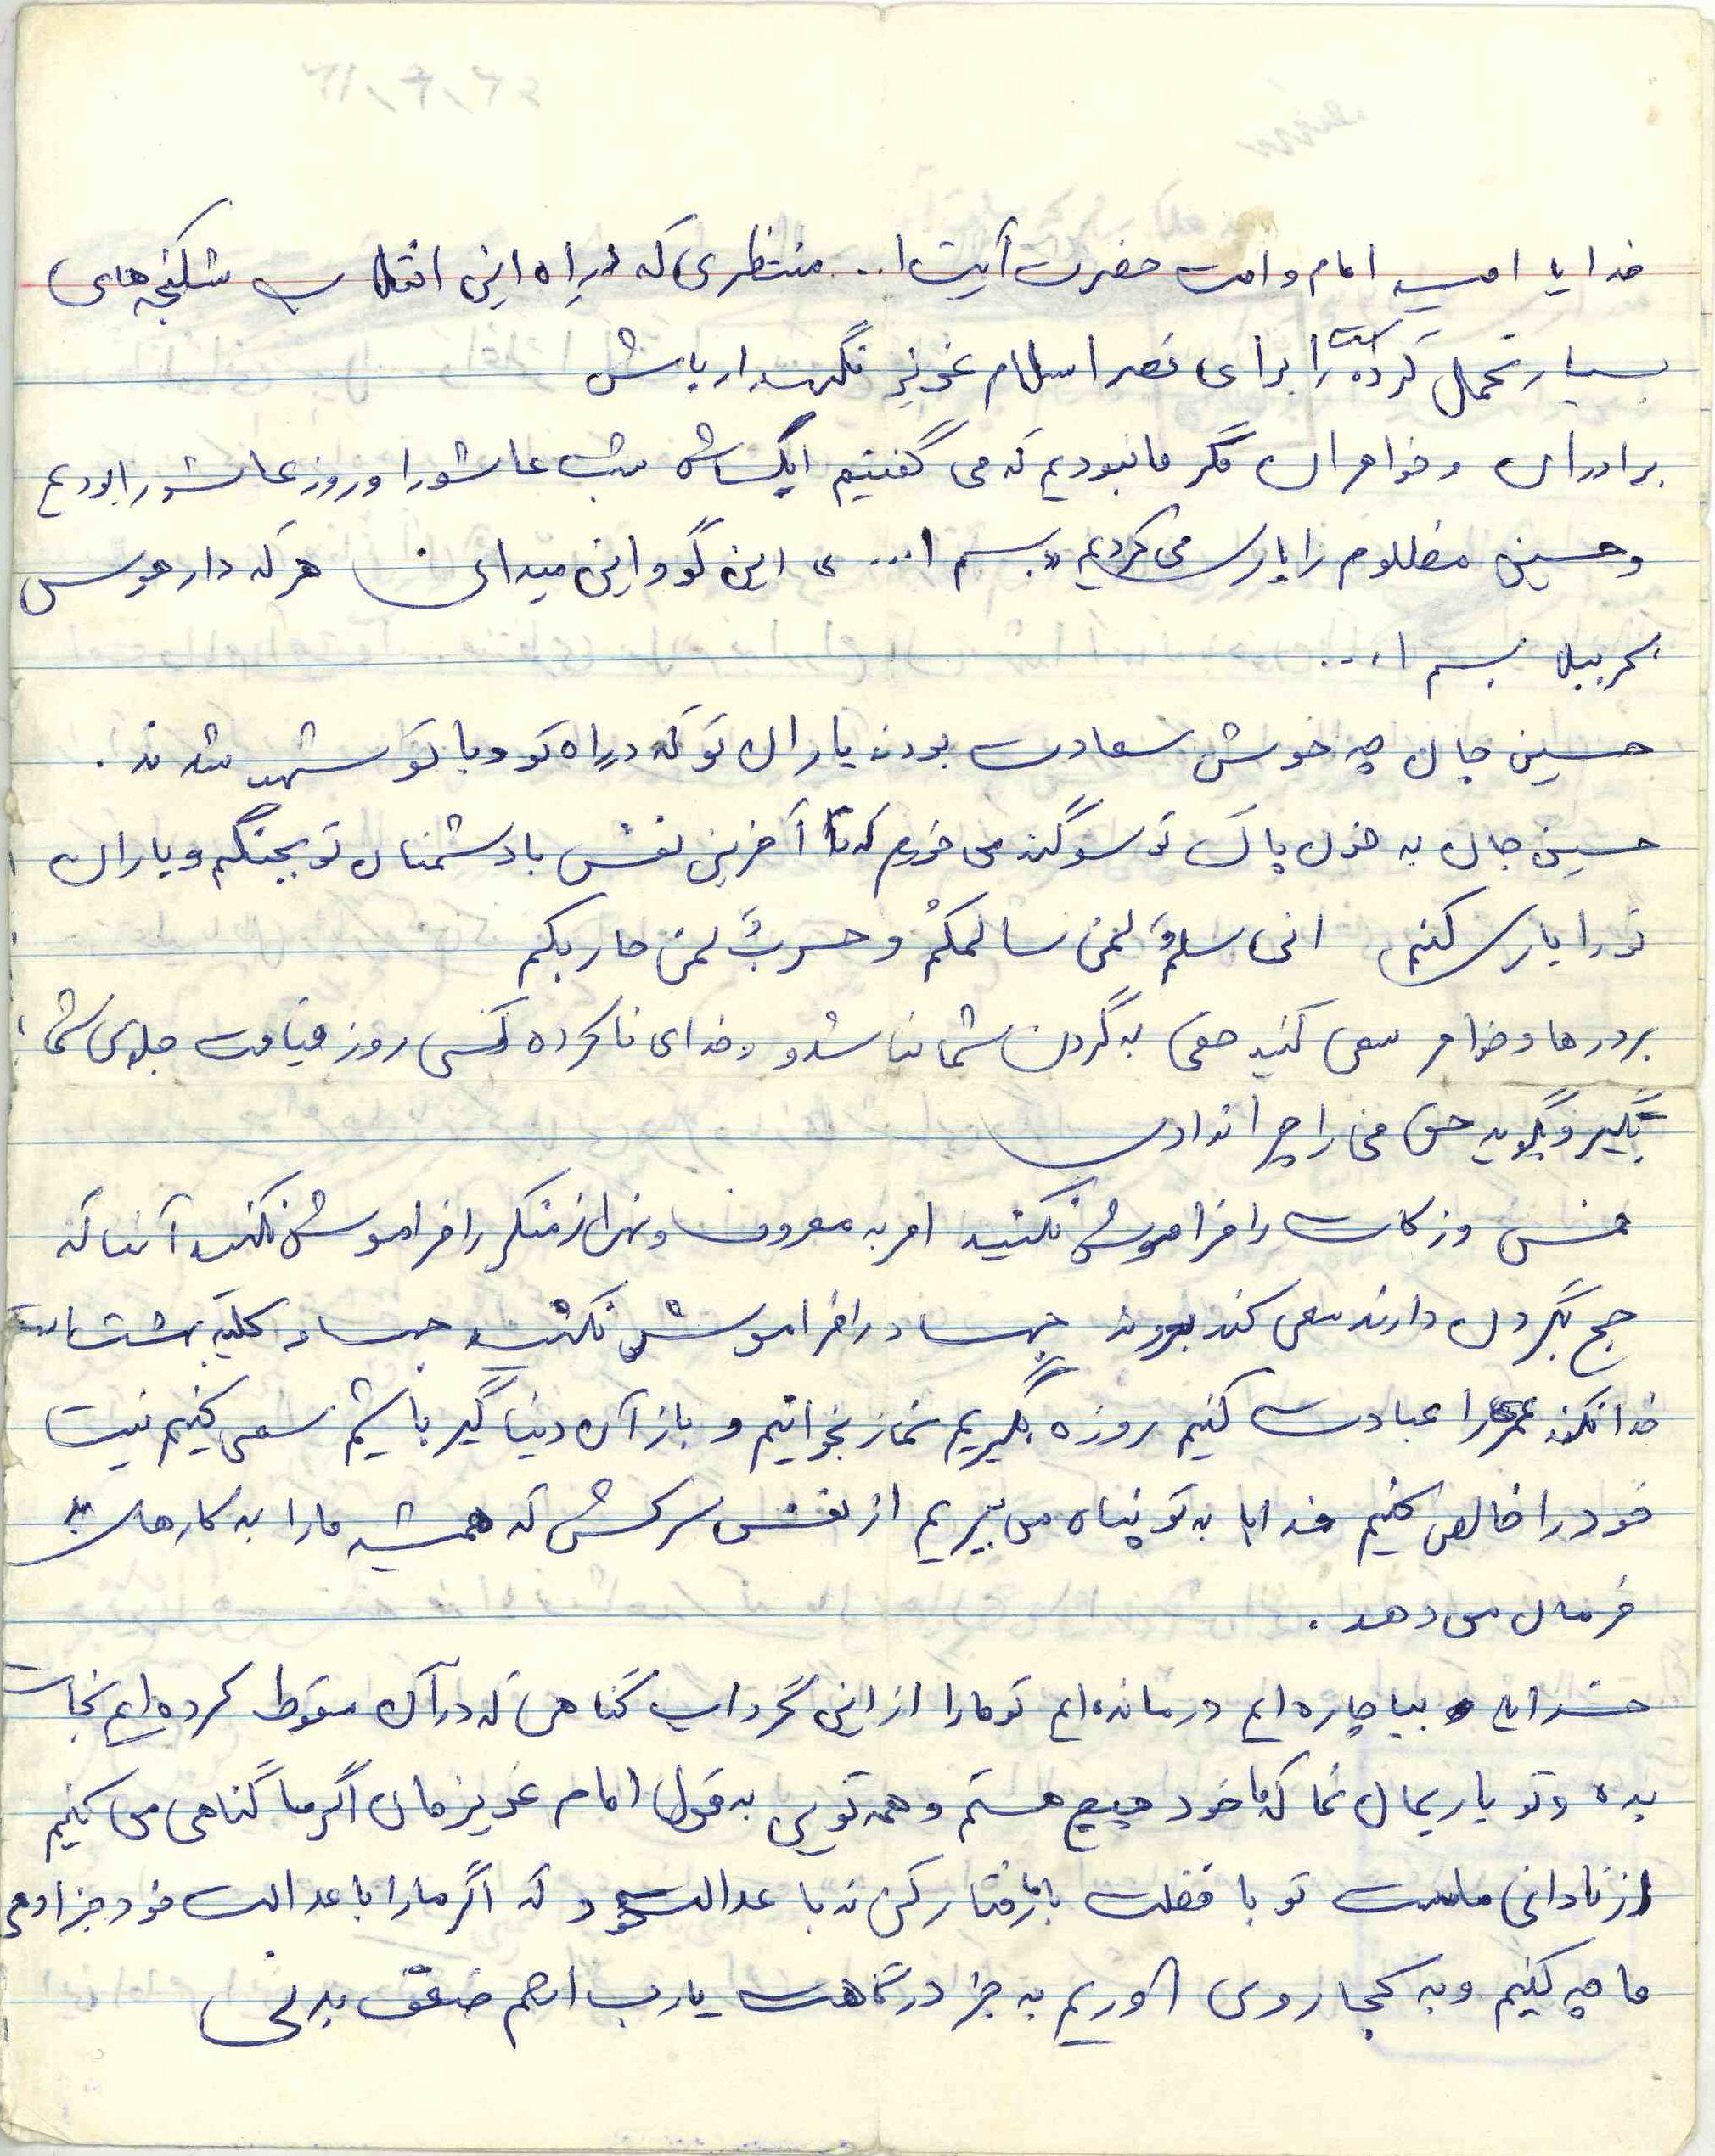 خدایا امید امام و امت حضرت آیت ا... منتظری که در راه این انقلاب شکنجه های
بسیار تحمل کرده است را برای نصر اسلام عزیز نگهدار باش
برادران و خواهران مگر ما نبودیم که می گفتیم ایکاش شب عاشورا و روز عاشورا بودیم
و حسین مظلوم را یاری می کردیم بسم ا... این گو و این میدان هر که دارد هوس
کربلا بسم ا...
حسین جان چه خوش سعادت بودند یاران تو که در راه تو و با تو شهید شدند .
حسین جان به خون پاک تو سوگند می خورم که تا آخرین نفس با دشمنان تو بجنگم و یاران
تو را یاری کنم انی سلمٌ لمن سالمکُم و حربٌ لمن حاربکم
بردرها و خواهر سعی کنید حقی به گردن شما نباشد و خدای ناکرده کسی روز قیامت جلوی شما
بگیر و بگوید حق من را چرا ندادی
خمس و زکات را فراموش نکنید امر به معروف و نهی از منکر را فراموش نکنید آنها که
حج بگردن دارند سعی کنند بروند جهاد را فراموش نکنید جهاد کلید بهشت است
خدا نکند عمری را عبادت کنیم روزه بگیریم نماز بخوانیم و باز آن دنیا گیر باشیم سعی کنیم نیت
خود را خالص کنیم خدایا به تو پناه می بریم از نفس سرکش که همیشه ما را به کارهای بد
فرمان می دهد .
خدایا بیچاره ایم درمانده ایم تو ما را از این گرداب گناهی که در آن سقوط کرده ایم نجات
بده و تو یاریمان نما که ما خود هیچ هستیم و همه تویی به قول امام عزیزمان اگر ما گناهی می کنیم
از نادانی ماست تو با فضلت با ما رفتار کن نه با عدالت خود که اگر ما را با عدالت خود جزا دهی
ما چه کنیم و به کجا روی آوریم به جز درگاهت یارب ارحم ضعف بدنی